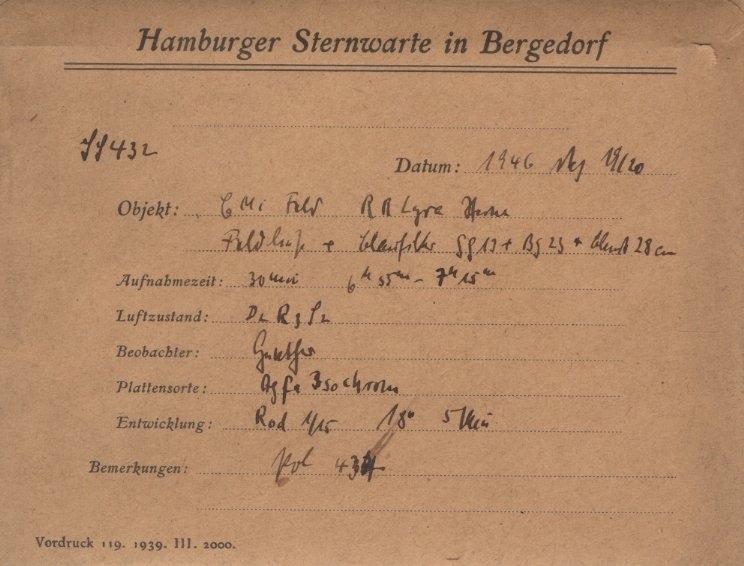 Hamburger Sternwarte in Bergedorf
432
Datum: 1946 19/20
Objekt: Feld RR Lyra Sterne
+ Blaufilter + Bg 23 + 28 cm
Aufnahmezeit: 30 min 6h 55m – 7h 15m
Luftzustand: D2 R3 S2
Beobachter:
Plattensorte: Agfa Isochrom
Entwicklung: Rod 1/15 18° 5 Min
Bemerkungen: Pol
Vordruck 119. 1939. III. 2000.